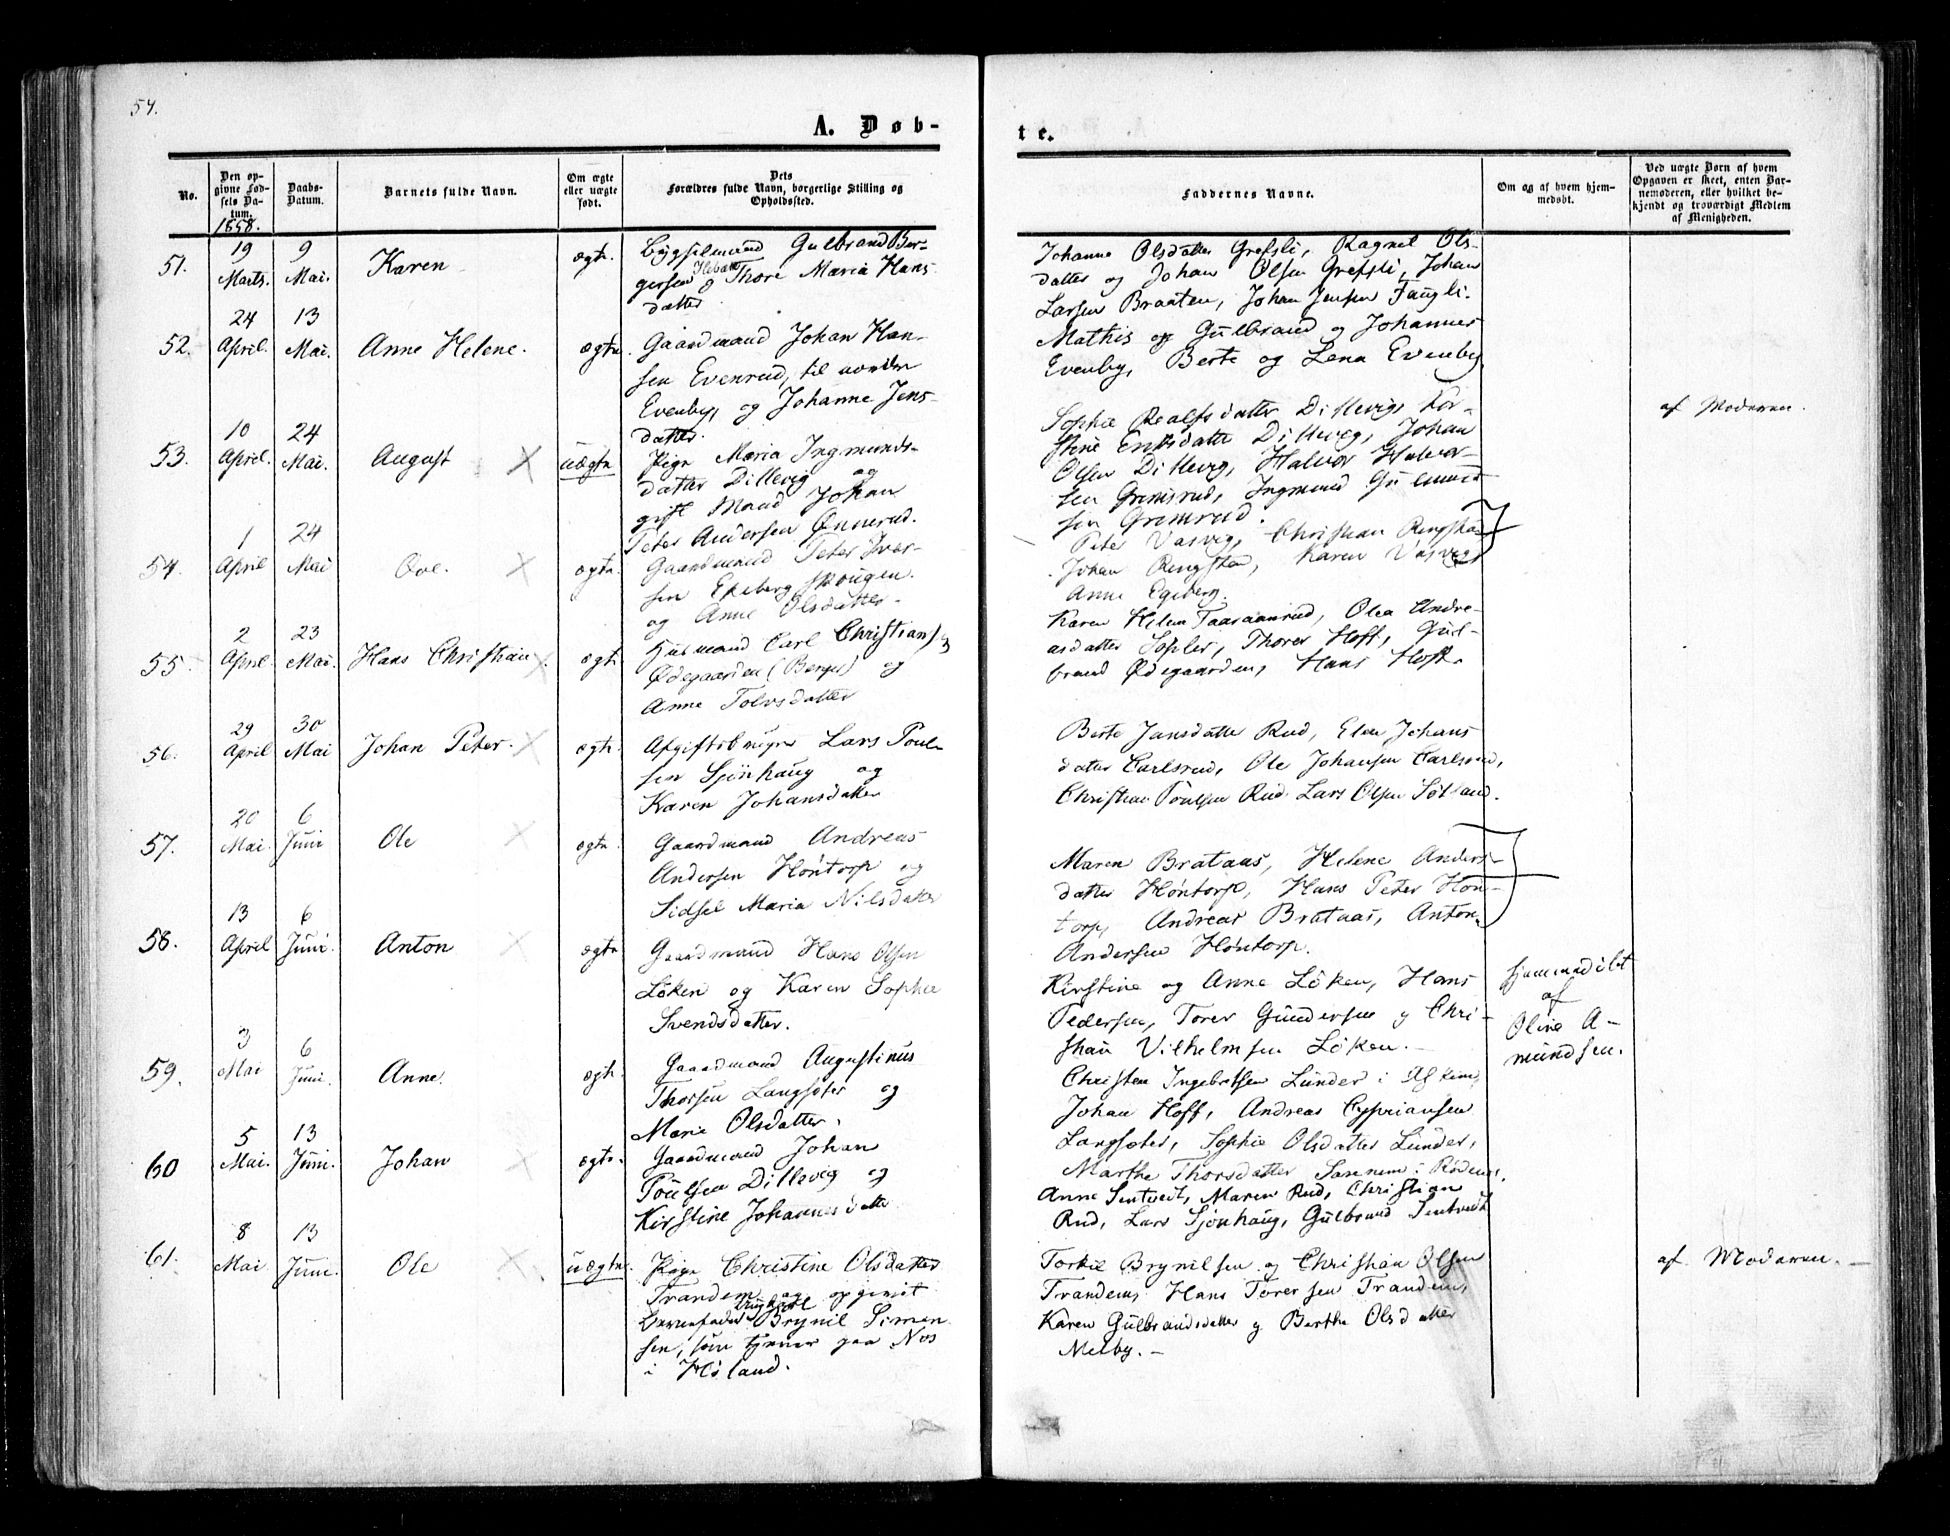 54.
A. Døb-
te.
No.
Den op-
givne Fød-
sels Da-
tum.
1858.
Daabs-
Datum.
Barnets fulde Navn.
Om ægte
eller uægte
født.
Dets
Forældres fulde Navn, borgerlige Stilling og
Opholdssted.
Faddernes Navne.
Om og af hvem hjem-
medøbt.
Ved uægte Børn af hvem
Opgaven er skeet, enten Bar-
nemoderen, eller hvilket be-
kjendt og troværdigt Medlem
af Menigheden.
51.
19
Marts.
9
Mai.
Karen
ægte.
Bygselmand Gulbrand Ber-
gersen og Thore Maria Hans
datter
Johanne Olsdatter Grefsli, Ragnil Ols-
datter og Johan Olsen Grefsli, Johan
Larsen Braaten, Johan Jensen Taugli.
52.
24
April.
13
Mai.
Anne Helene.
ægte.
Gaardmand Johan Han-
sen Evenrud, til nordre
Evenby, og Johanne Jens-
datter.
Mathis og Gulbrand og Johannes
Evenby, Berte og Lena Evenby
53.
10
April.
24
Mai.
August
uægte
Pige Maria Ingmunds-
datter Dillevig og
gift Mand Johan
Peter Andersen Ønnerud.
Sophie Realfsdatter Dillevig, Kir-
stine Eriksdatter Dillevig, Johan
Olsen Dillevig, Halvor Halvor-
sen Grimsrud, Ingmund Gulmund
sen Grimsrud.
af Moderen.
54.
1
April
24
Mai
Ove.
ægte.
Gaardmand Peter Iver-
sen Ekeberg Skougen.
og Anne Olsdatter.
Peter Vasvig, Christian Ringstad
Johan Ringstad, Karen Vasvig
Anne Egeberg.
55.
2
April
23
Mai.
Hans Christian
ægte
Husmand Carl Christians
Ødegaarden (Berger) og
Anne Tolvsdatter
Karen Helene Taaraanrud, Olea Andre-
asdatter Sopler, Thorer Hoff, Gul-
brand Ødegaarden, Hans Hoff.
56.
29
April
30
Mai
Johan Peter.
ægte.
Afgiftsbruger Lars Poul-
sen Sjønhaug og
Karen Johansdatter
Berte Jansdatter Rud, Elen Johans
datter Carlsrud, Ole Johansen Carlsrud,
Christian Poulsen Rud Lars Olsen
57.
20
Mai.
6
Juni
Ole
ægte.
Gaardmand Andreas
Andersen Høntorp og
Sidsel Maria Nilsdatter
Maren Brataas, Helene Anders-
datter Høntorp, Hans Peter Høn-
torp, Andreas Brataas, Anton
Andersen Høntorp.
58.
13
April
6
Juni.
Anton
ægte
Gaardmand Hans Olsen
Løken og Karen Sophie
Svendsdatter.
Kirstine og Anne Løken, Hans
Pedersen, Torer Gundersen og Chri-
stian Vilhelmsen Løken.
hjemmedøbt
af
Oline A-
mundsen.
59.
3
Mai
6
Juni.
Anne.
ægte.
Gaardmand Augustinus
Thorsen Langsæter og
Marie Olsdatter.
Christen Ingebretsen Lunder i Askim,
Johan Hoff, Andreas Cypriansen
Langsæter, Sophie Olsdatter Lunder,
Marthe Thorsdatter i Rødenes,
60
5
Mai.
13
Juni.
Johan
ægte.
Gaardmand Johan
Poulsen Dillevig og
Kirstine Johannesdatter
Anne Sentvedt, Maren Rud, Christian
Rud, Lars Sjønhaug, Gulbrand Sentvedt
61.
8
Mai
13
Juni.
Ole
uægte.
Pige Christine Olsdatter
Trandem og opgivet
Barnefader Ungkarl Brynil Simen
sen, som tjener paa Nos
i Høland.
Torkil Brynilsen og Christian Olsen
Trandem, Hans Torersen Trandem,
Karen Gulbrandsdatter og Berthe Olsdatter
Melby.
af Moderen.